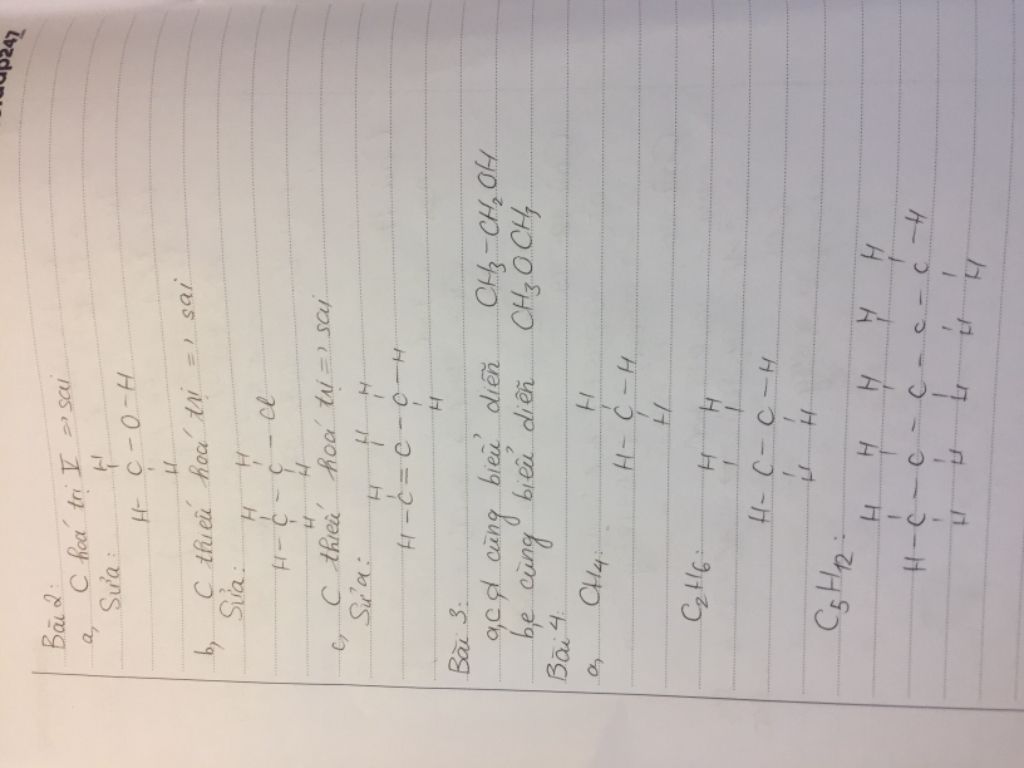 Bài 2:
a, C hoá trị V => sai
Sửa:
H
H - C - O - H
H
b, C thiếu hoá trị => sai
Sửa:
H H
H - C - C - Cl
H H
c, C thiếu hoá trị => sai
Sửa:
H H H
H - C = C - C - H
H
Bài 3:
a,c,d cùng biểu diễn CH3 - CH2OH
b,e cùng biểu diễn CH3OCH3
Bài 4:
a, CH4:
H
H - C - H
H
C2H6:
H H
H - C - C - H
H H
C5H12:
H H H H H
H - C - C - C - C - C - H
H H H H H